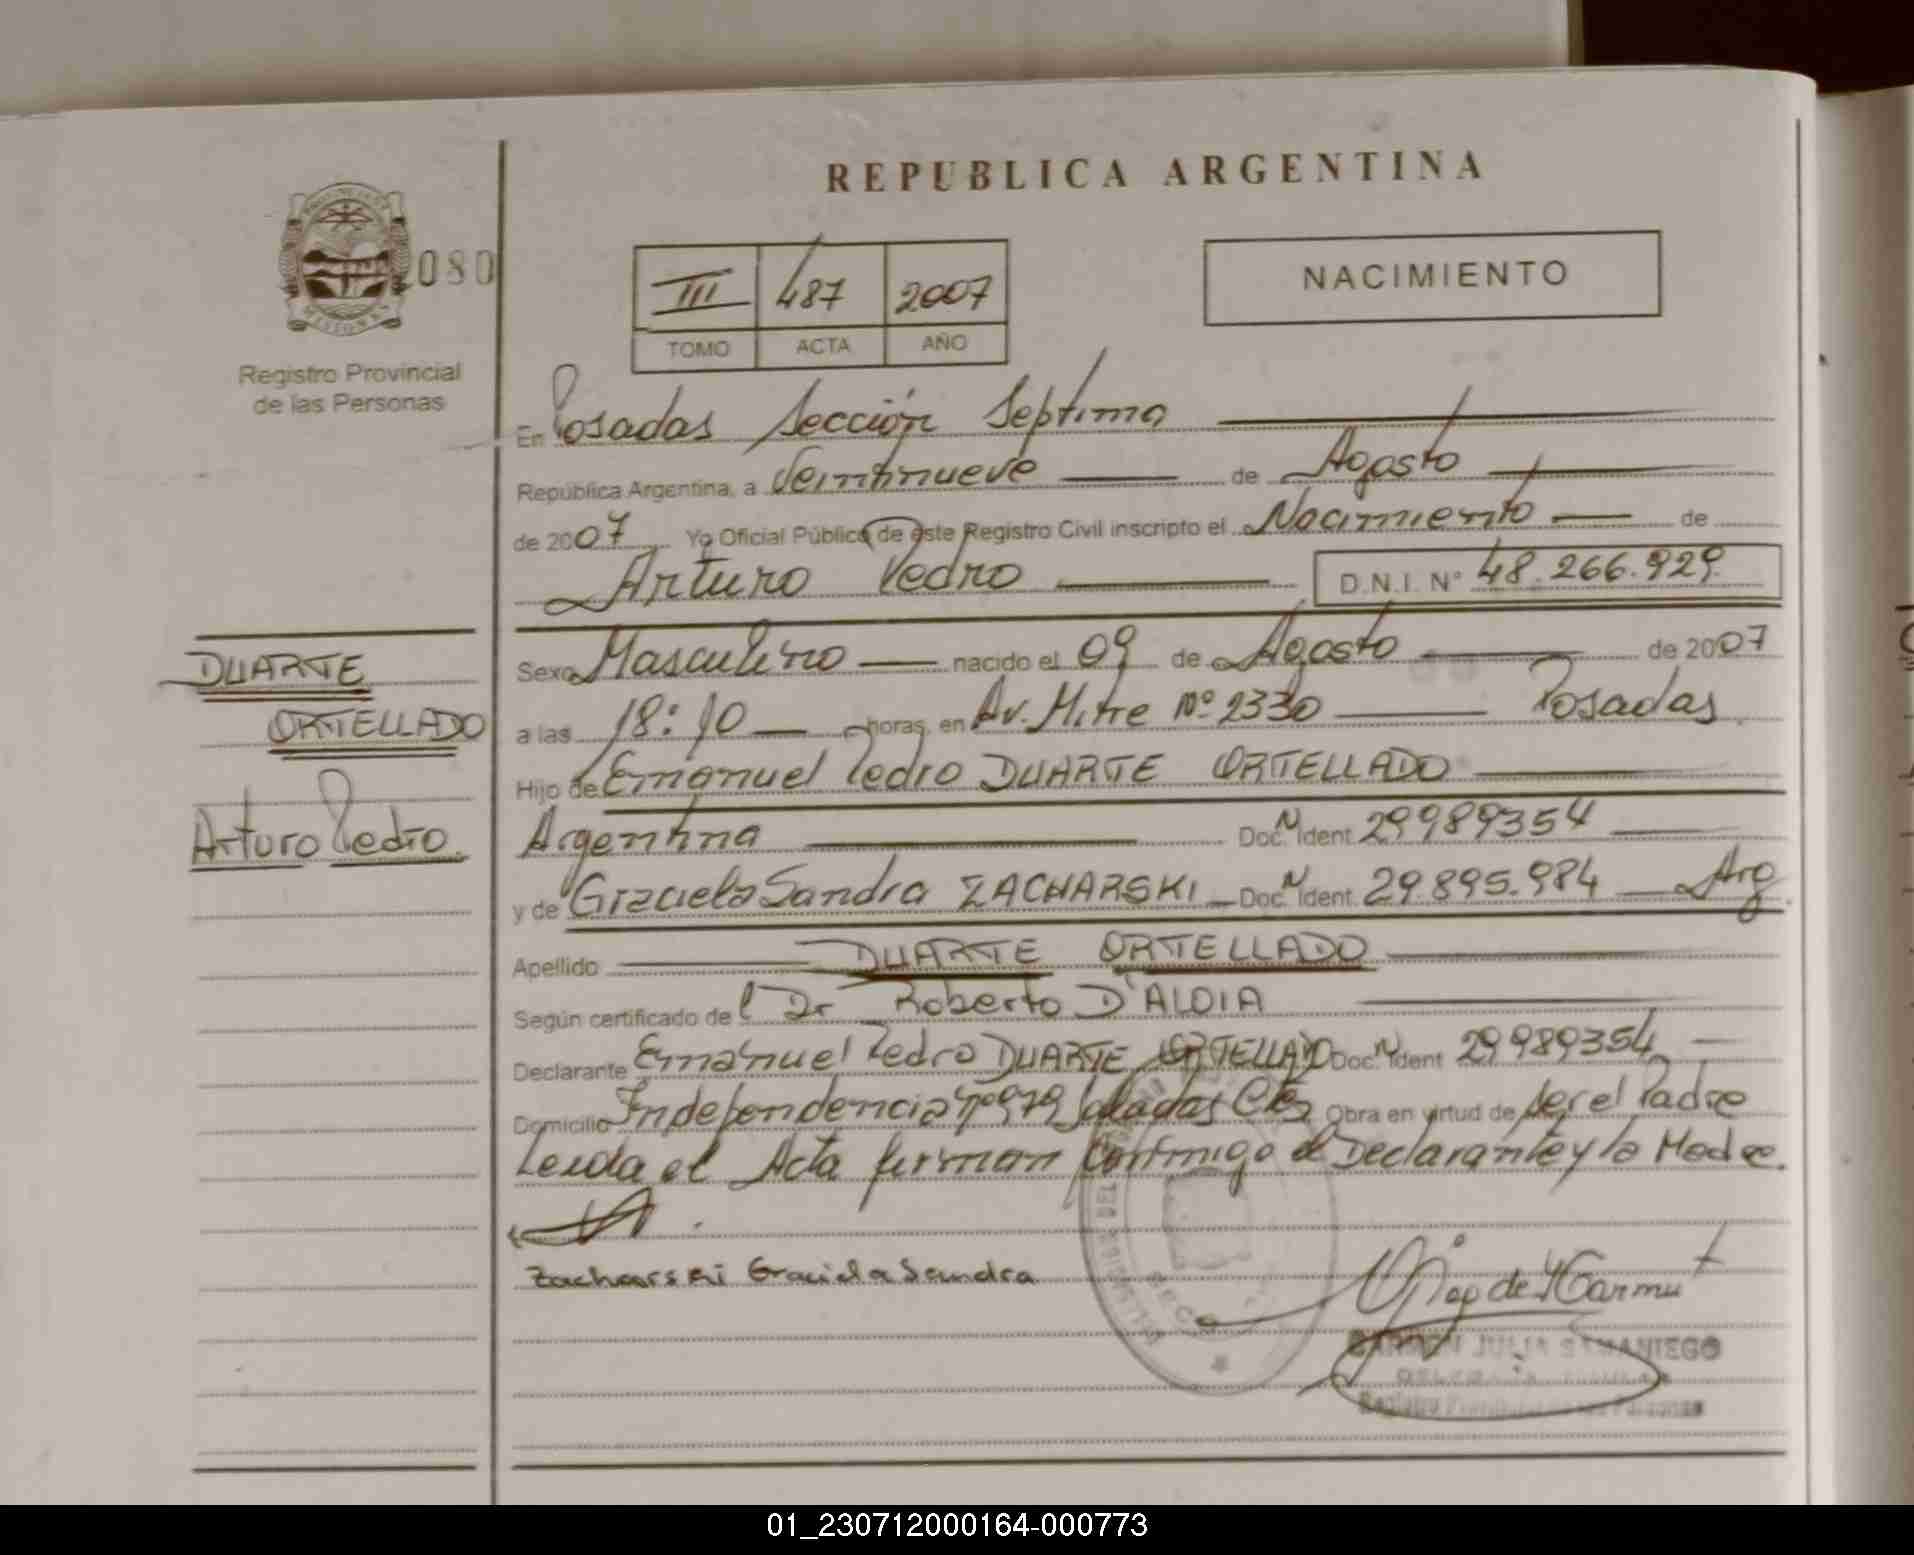 REPUBLICA ARGENTINA
PROVINCIA DE
MISIONES
080
Registro Provincial
de las Personas
III 487 2007
TOMO ACTA AÑO
NACIMIENTO
En Posadas Sección Septima
República Argentina, a Veintinueve de Agosto
de 2007 Yo Oficial Público de este Registro Civil inscripto el Nacimiento de
Arturo Pedro D.N.I. N° 48.266.929
DUARTE
ORTELLADO
Arturo Pedro.
Sexo Masculino nacido el 09 de Agosto de 2007
a las 18:10 horas, en Av. Mitre Nº 2330 Posadas.
Hijo de Emanuel Pedro DUARTE ORTELLADO
Argentina Doc. N Ident. 29989354
y de Graciela Sandra ZACHARSKI Doc. N Ident. 29.895.984 Arg.
Apellido DUARTE ORTELLADO
Según certificado del Dr Roberto D'ALOIA
Declarante Emanuel Pedro DUARTE ORTELLADO Doc. N Ident 29989354
Domicilio Independencia nº979 Saladas Ctes Obra en virtud de ser el Padre
Leida el Acta firman conmigo el Declarante y la Madre.
Zacharski Graciela Sandra
CARMEN JULIA SAMANIEGO
Registro Provincial de las Personas
01_230712000164-000773